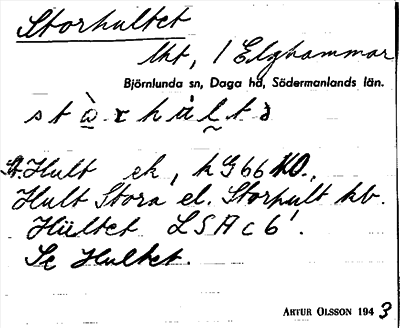 Storhultet
lht, / Elghammar
Björnlunda sn, Daga hd, Södermanlands län.
St. Hult ek, kG66 HO.,
Hult Stora el. Storhult kb.
Hültet LSA c 6'.
Se Hultet.
ARTUR OLSSON 1943